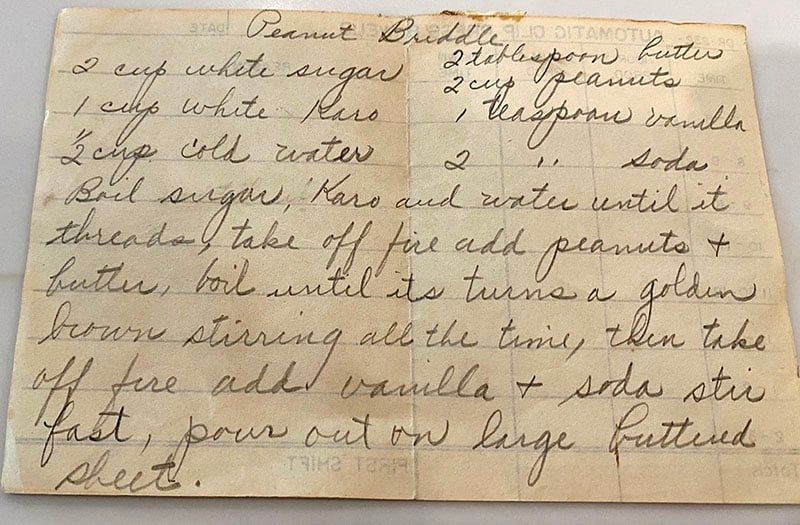 Peanut Briddle
2 cup white sugar
1 cup white Karo
1/2 cup cold water
2 tablespoon butter
2 cup peanuts
1 teaspoon vanilla
2 " soda
Boil sugar, Karo and water until it
threads, take off fire add peanuts +
butter, boil until its turns a golden
brown stirring all the time, then take
off fire add vanilla + soda stir
fast, pour out on large buttered
sheet.
AUTOMATIC CLIP
DATE
TIME
FIRST SHIFT